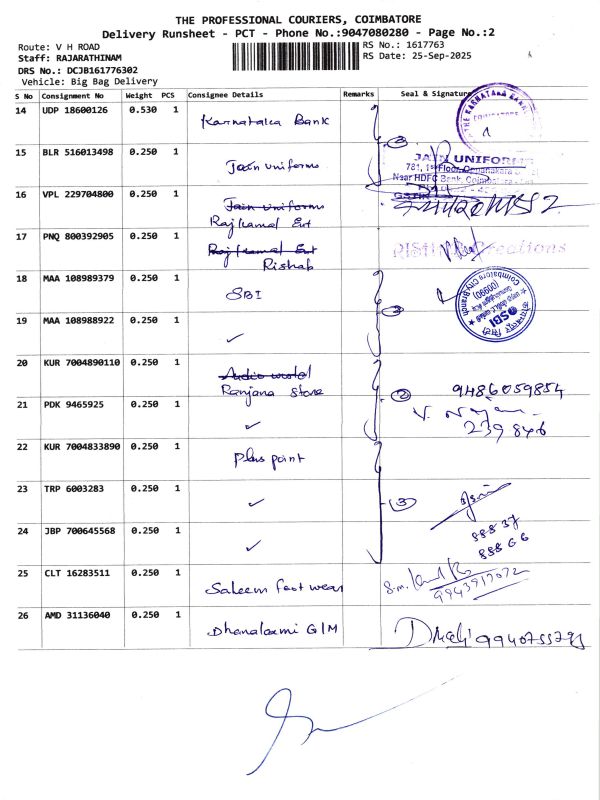 THE PROFESSIONAL COURIERS, COIMBATORE
Delivery Runsheet - PCT - Phone No.:9047080280 - Page No.:2
Route: V H ROAD
RS No.: 1617763
Staff: RAJARATHINAM
RS Date: 25-Sep-2025
DRS No.: DCJB161776302
Vehicle: Big Bag Delivery
S No Consignment No Weight PCS Consignee Details Remarks Seal & Signature
14 UDP 18600126 0.530 1 Karnataka Bank
THE KARNATAKA BANK
COIMBATORE
15 BLR 516013498 0.250 1 Jain uniforms
JAIN UNIFORMS
781, 1st Floor, Oppanakara
Near HDFC Bank, Coimbatore
16 VPL 229704800 0.250 1 Jain uniforms
Rajkamal Ent
17 PNQ 800392905 0.250 1 Rajkamal Ent
Rishab
Creations
18 MAA 108989379 0.250 1 SBI
SBI
(00990)
Coimbatore City Branch
19 MAA 108988922 0.250 1 ✓
20 KUR 7004890110 0.250 1 Audio world
Ranjana Store
② 9486059854
21 PDK 9465925 0.250 1 ✓
239846
22 KUR 7004833890 0.250 1 Plus point
23 TRP 6003283 0.250 1 ✓
③
24 JBP 700645568 0.250 1 ✓
88837
88866
25 CLT 16283511 0.250 1 Saleem foot wear
9943917072
26 AMD 31136040 0.250 1 Dhanalaxmi G/M